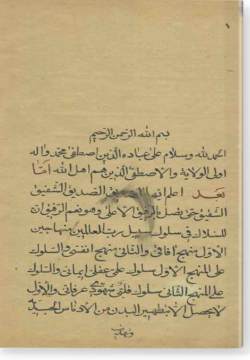 بسم الله الرحمن الرحيم
الحمد لله وسلام على عباده الذين اصطفى محمد واله
اولى الولاية والاصطفى الذين هم اهل الله امّا
بعد اعلم ايها الصديق الشفيق
حتى تصل الرفيق الاعلى وهو نعم الرفيق ان
للسلاك فى سلوك سبيل رب العالمين منهاجين
الاول منهج افاقى والثانى منهج انفسى والسلوك
على المنهج الاول سلوك على ايمانى والسلوك
على المنهج الثانى سلوك قلبى شهودى عرفانى والاول
لا يحصل الا بتطهير البدن من الادناس